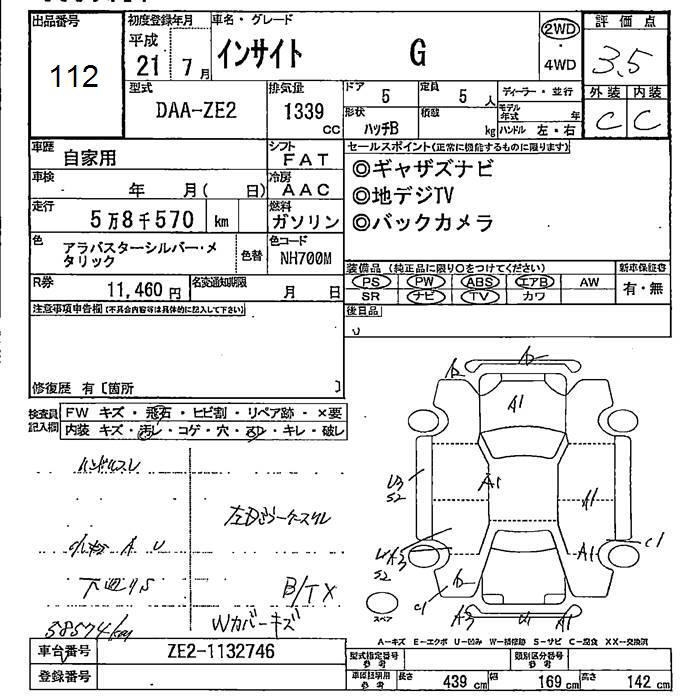 出品番号
112
初度登録年月
平成
21 7月
車名・グレード
インサイト G
2WD
・
4WD
評価点
3.5
型式
DAA-ZE2
排気量
1339
cc
ドア
5
定員
5 人
ディーラー・並行
外装 内装
C C
形状
ハッチB
積載
kg
モデル年式 年
ハンドル 左・右
車歴
自家用
シフト
FAT
セールスポイント(正常に機能するものに限ります)
◎ギャザズナビ
◎地デジTV
◎バックカメラ
車検
年 月( 日)
冷房
AAC
走行
5万8千570 km
燃料
ガソリン
色
アラバスターシルバー・メ
タリック
色替
色コード
NH700M
装備品(純正品に限り○をつけてください)
新車保証書
PS PW ABS エアB AW
有・無
SR ナビ TV カワ
R券
11,460 円
名変通知期限
月 日
後日品
注意事項申告欄(不具合内容等は具体的に記入して下さい)
修復歴 有〔箇所 〕
検査員
記入欄
FW キズ・飛石・ヒビ割・リペア跡・×要
内装 キズ・汚レ・コゲ・穴・スレ・キレ・破レ
ハンドルスレ
A1
A1
A1
A1
小キズ A U
下廻りS
B/TX
Wカバーキズ
58574km
スペア
A―キズ E―エクボ U―凹み W―補修跡 S―サビ C―腐食 XX―交換済
車台番号
ZE2-1132746
登録番号
型式指定番号
参考
類別区分番号
参考
車庫証明用
参考
長さ
439 cm
幅
169 cm
高さ
142 cm